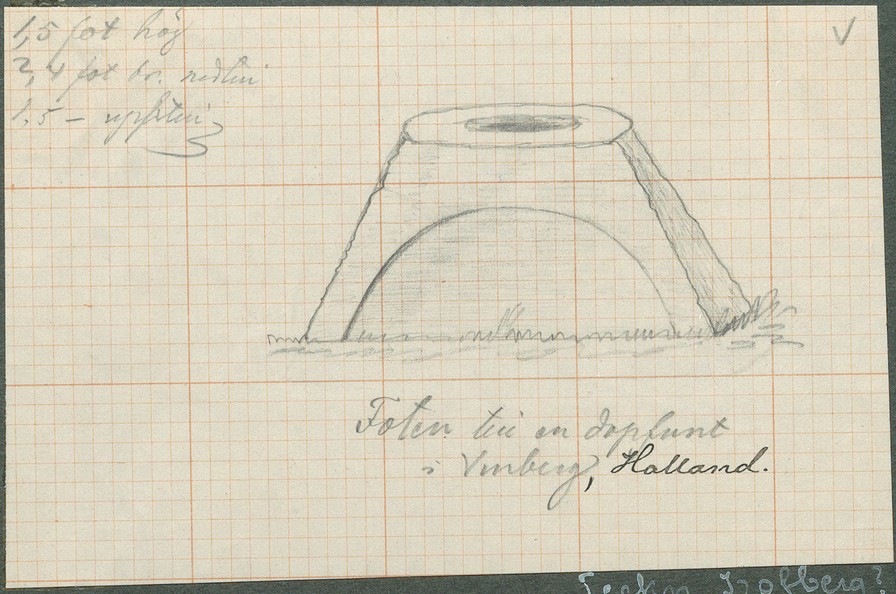 1,5 fot hög
2,4 fot br. nedtill
1,5 – upptill
V
Foten till en dopfunt
i Vinberg, Halland.